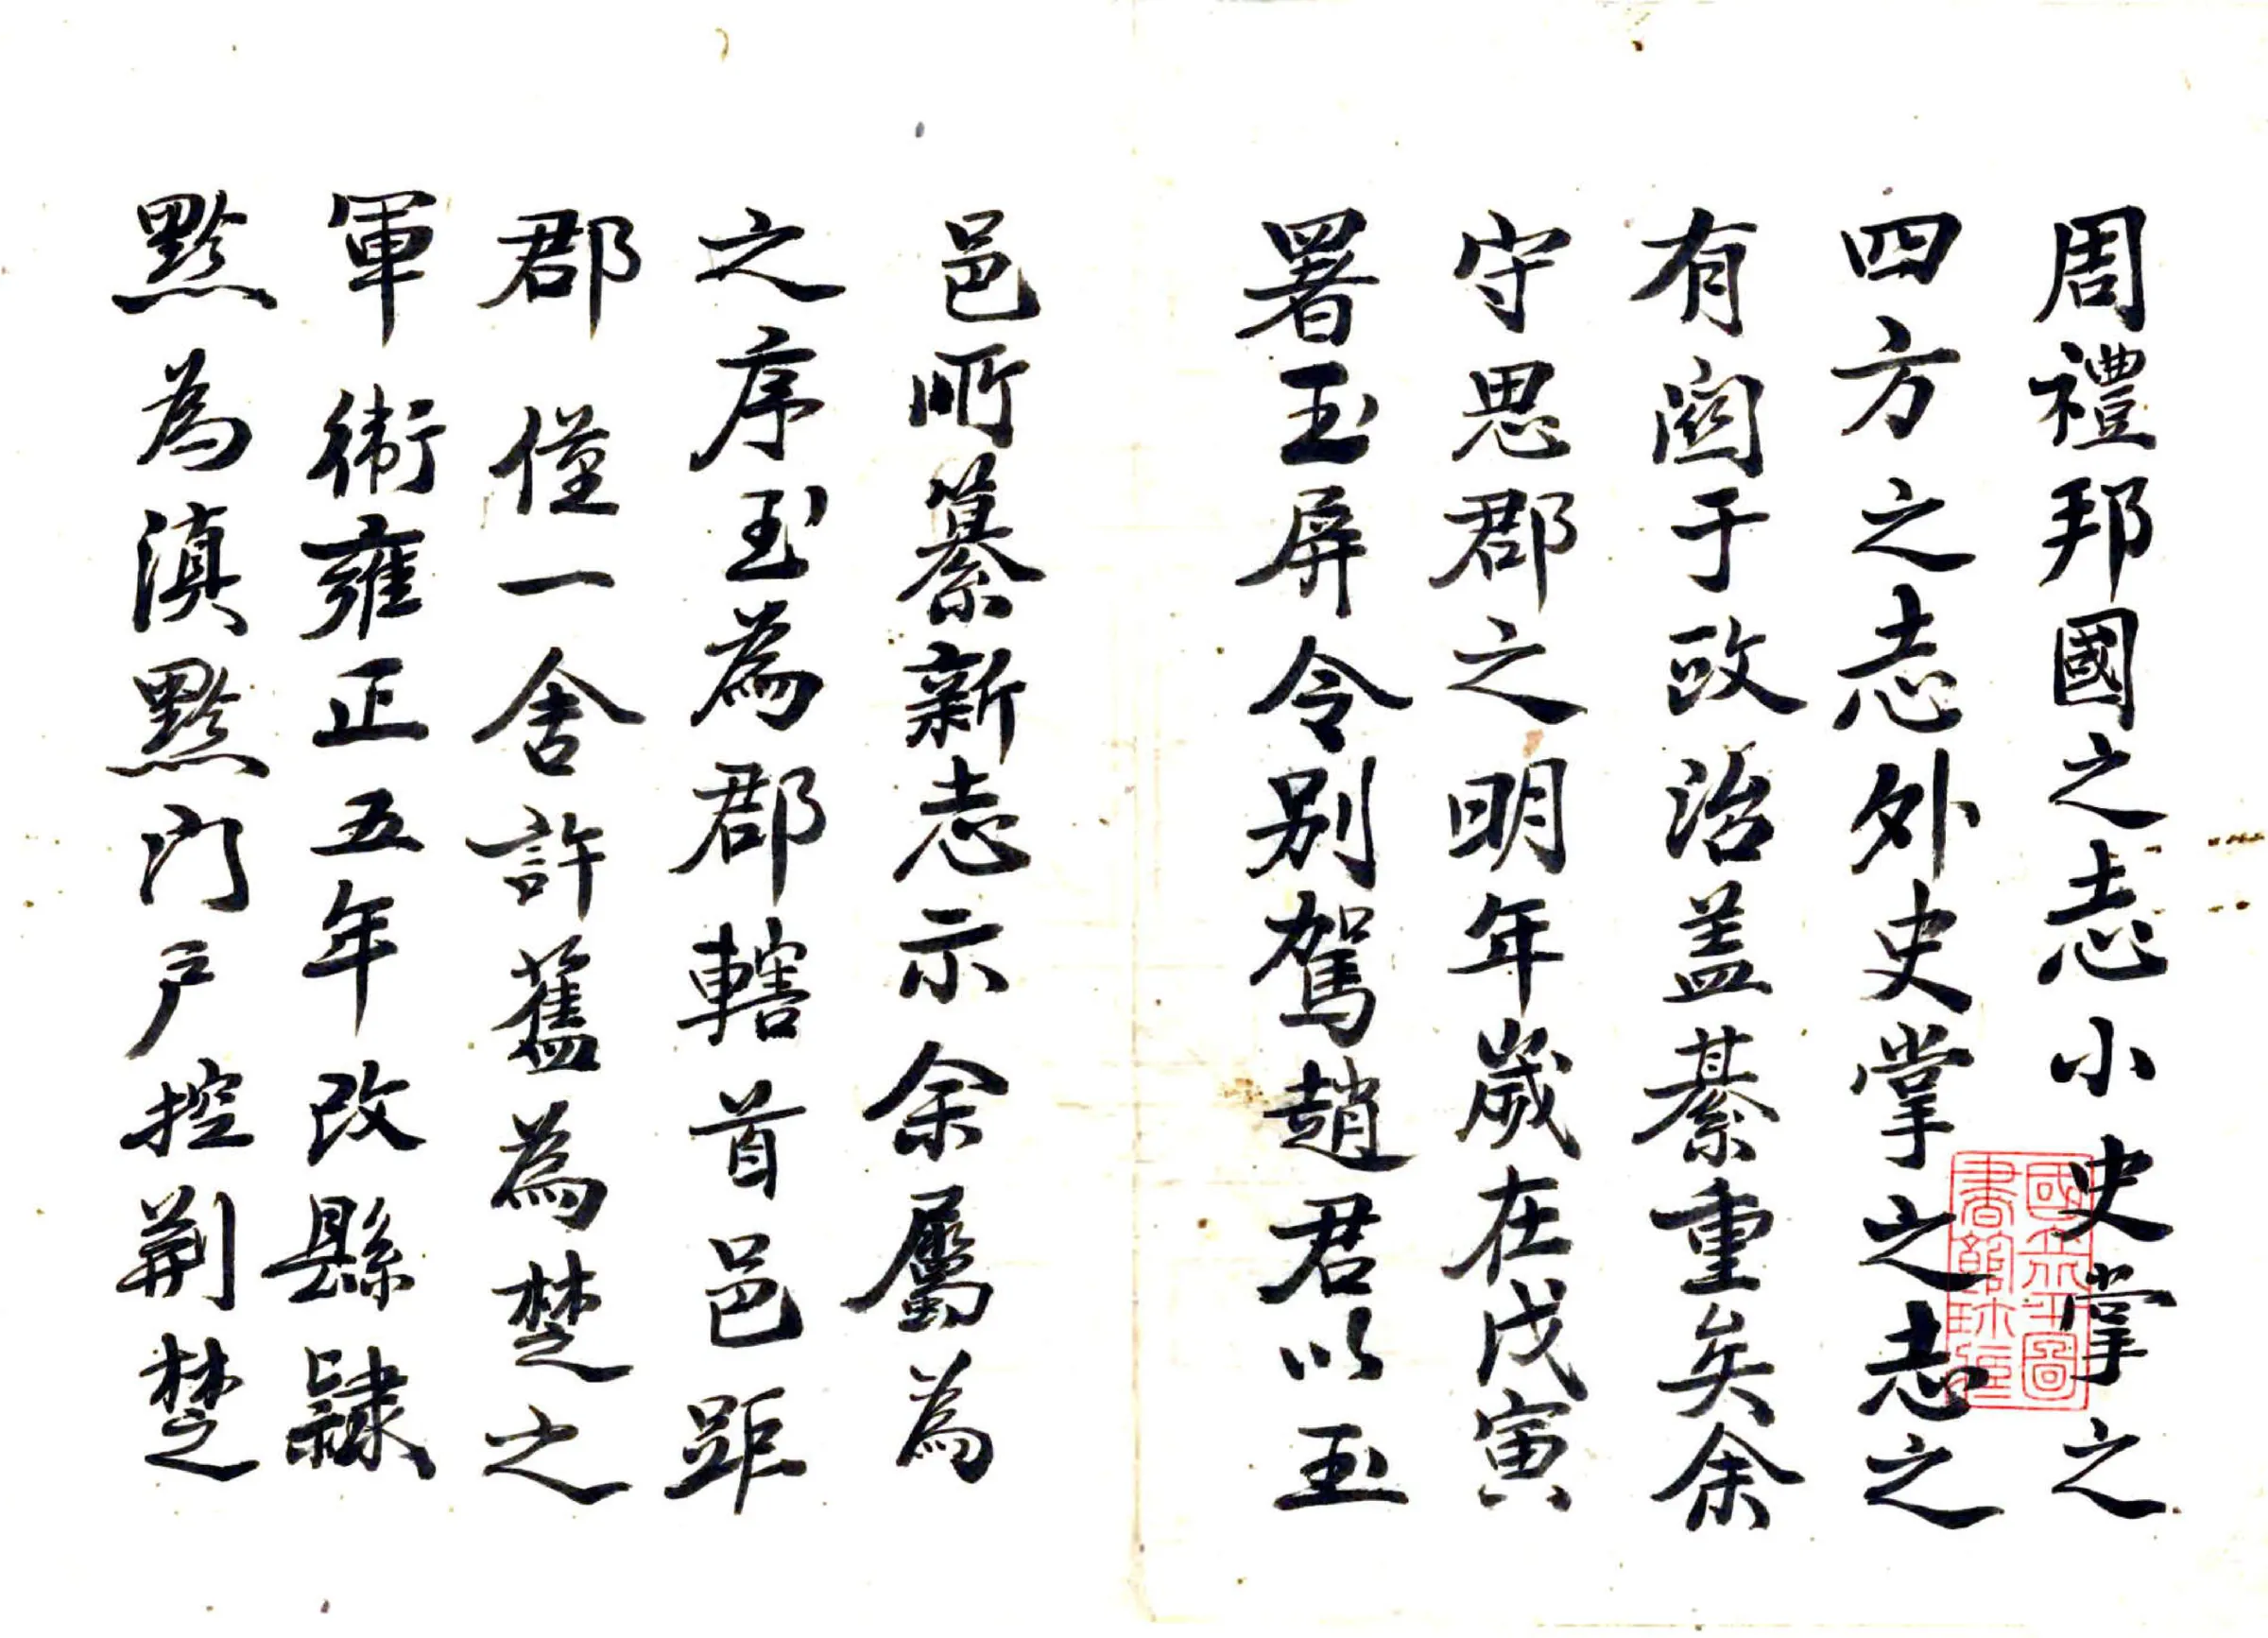 周禮邦國之志小史掌之
四方之志外史掌之志之
有関于政治盖綦重矣余
守思郡之明年歲在戊寅
署玉屏令别駕趙君以玉
邑所纂新志示余屬為
之序玉為郡轄首邑距
郡僅一舍許舊為楚之
軍衛雍正五年改縣隸
黔為滇黔门户控荆楚
國立北平圖
書館珍藏